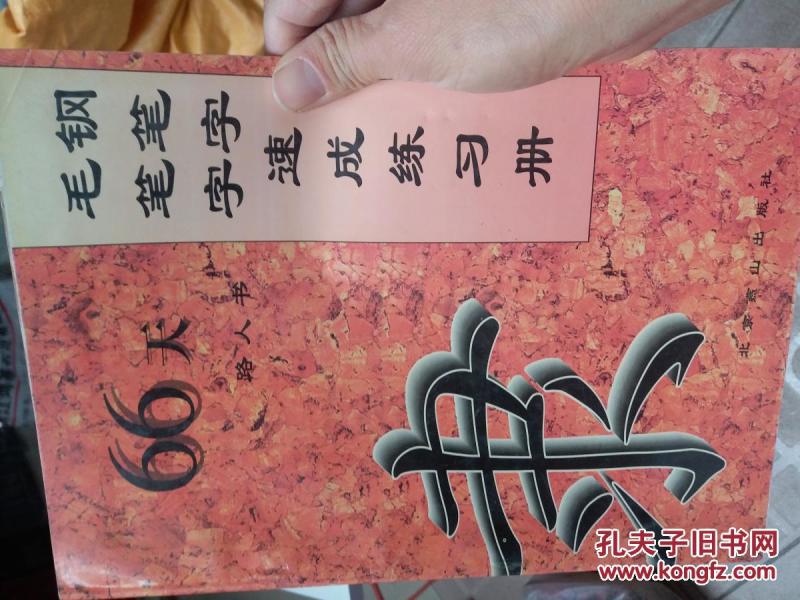 66天
路人书
毛笔字
钢笔字
速成练习册
隶
北京燕山出版社
孔夫子旧书网
www.kongfz.com